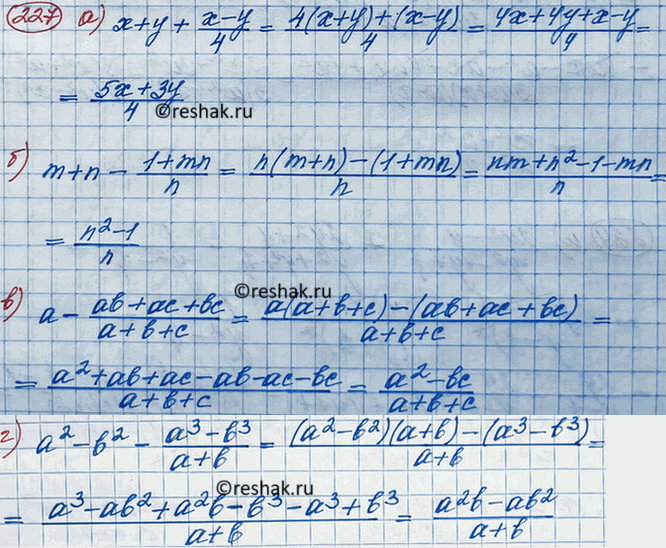 227 а) x+y + (x-y)/4 = (4(x+y)+(x-y))/4 = (4x+4y+x-y)/4 =
= (5x+3y)/4
©reshak.ru
б) m+n - (1+mn)/n = (n(m+n)-(1+mn))/n = (nm+n²-1-mn)/n =
= (n²-1)/n
©reshak.ru
в) a - (ab+ac+bc)/(a+b+c) = (a(a+b+c)-(ab+ac+bc))/(a+b+c) =
= (a²+ab+ac-ab-ac-bc)/(a+b+c) = (a²-bc)/(a+b+c)
г) a²-b² - (a³-b³)/(a+b) = ((a²-b²)(a+b)-(a³-b³))/(a+b) =
©reshak.ru
= (a³-ab²+a²b-b³-a³+b³)/(a+b) = (a²b-ab²)/(a+b)